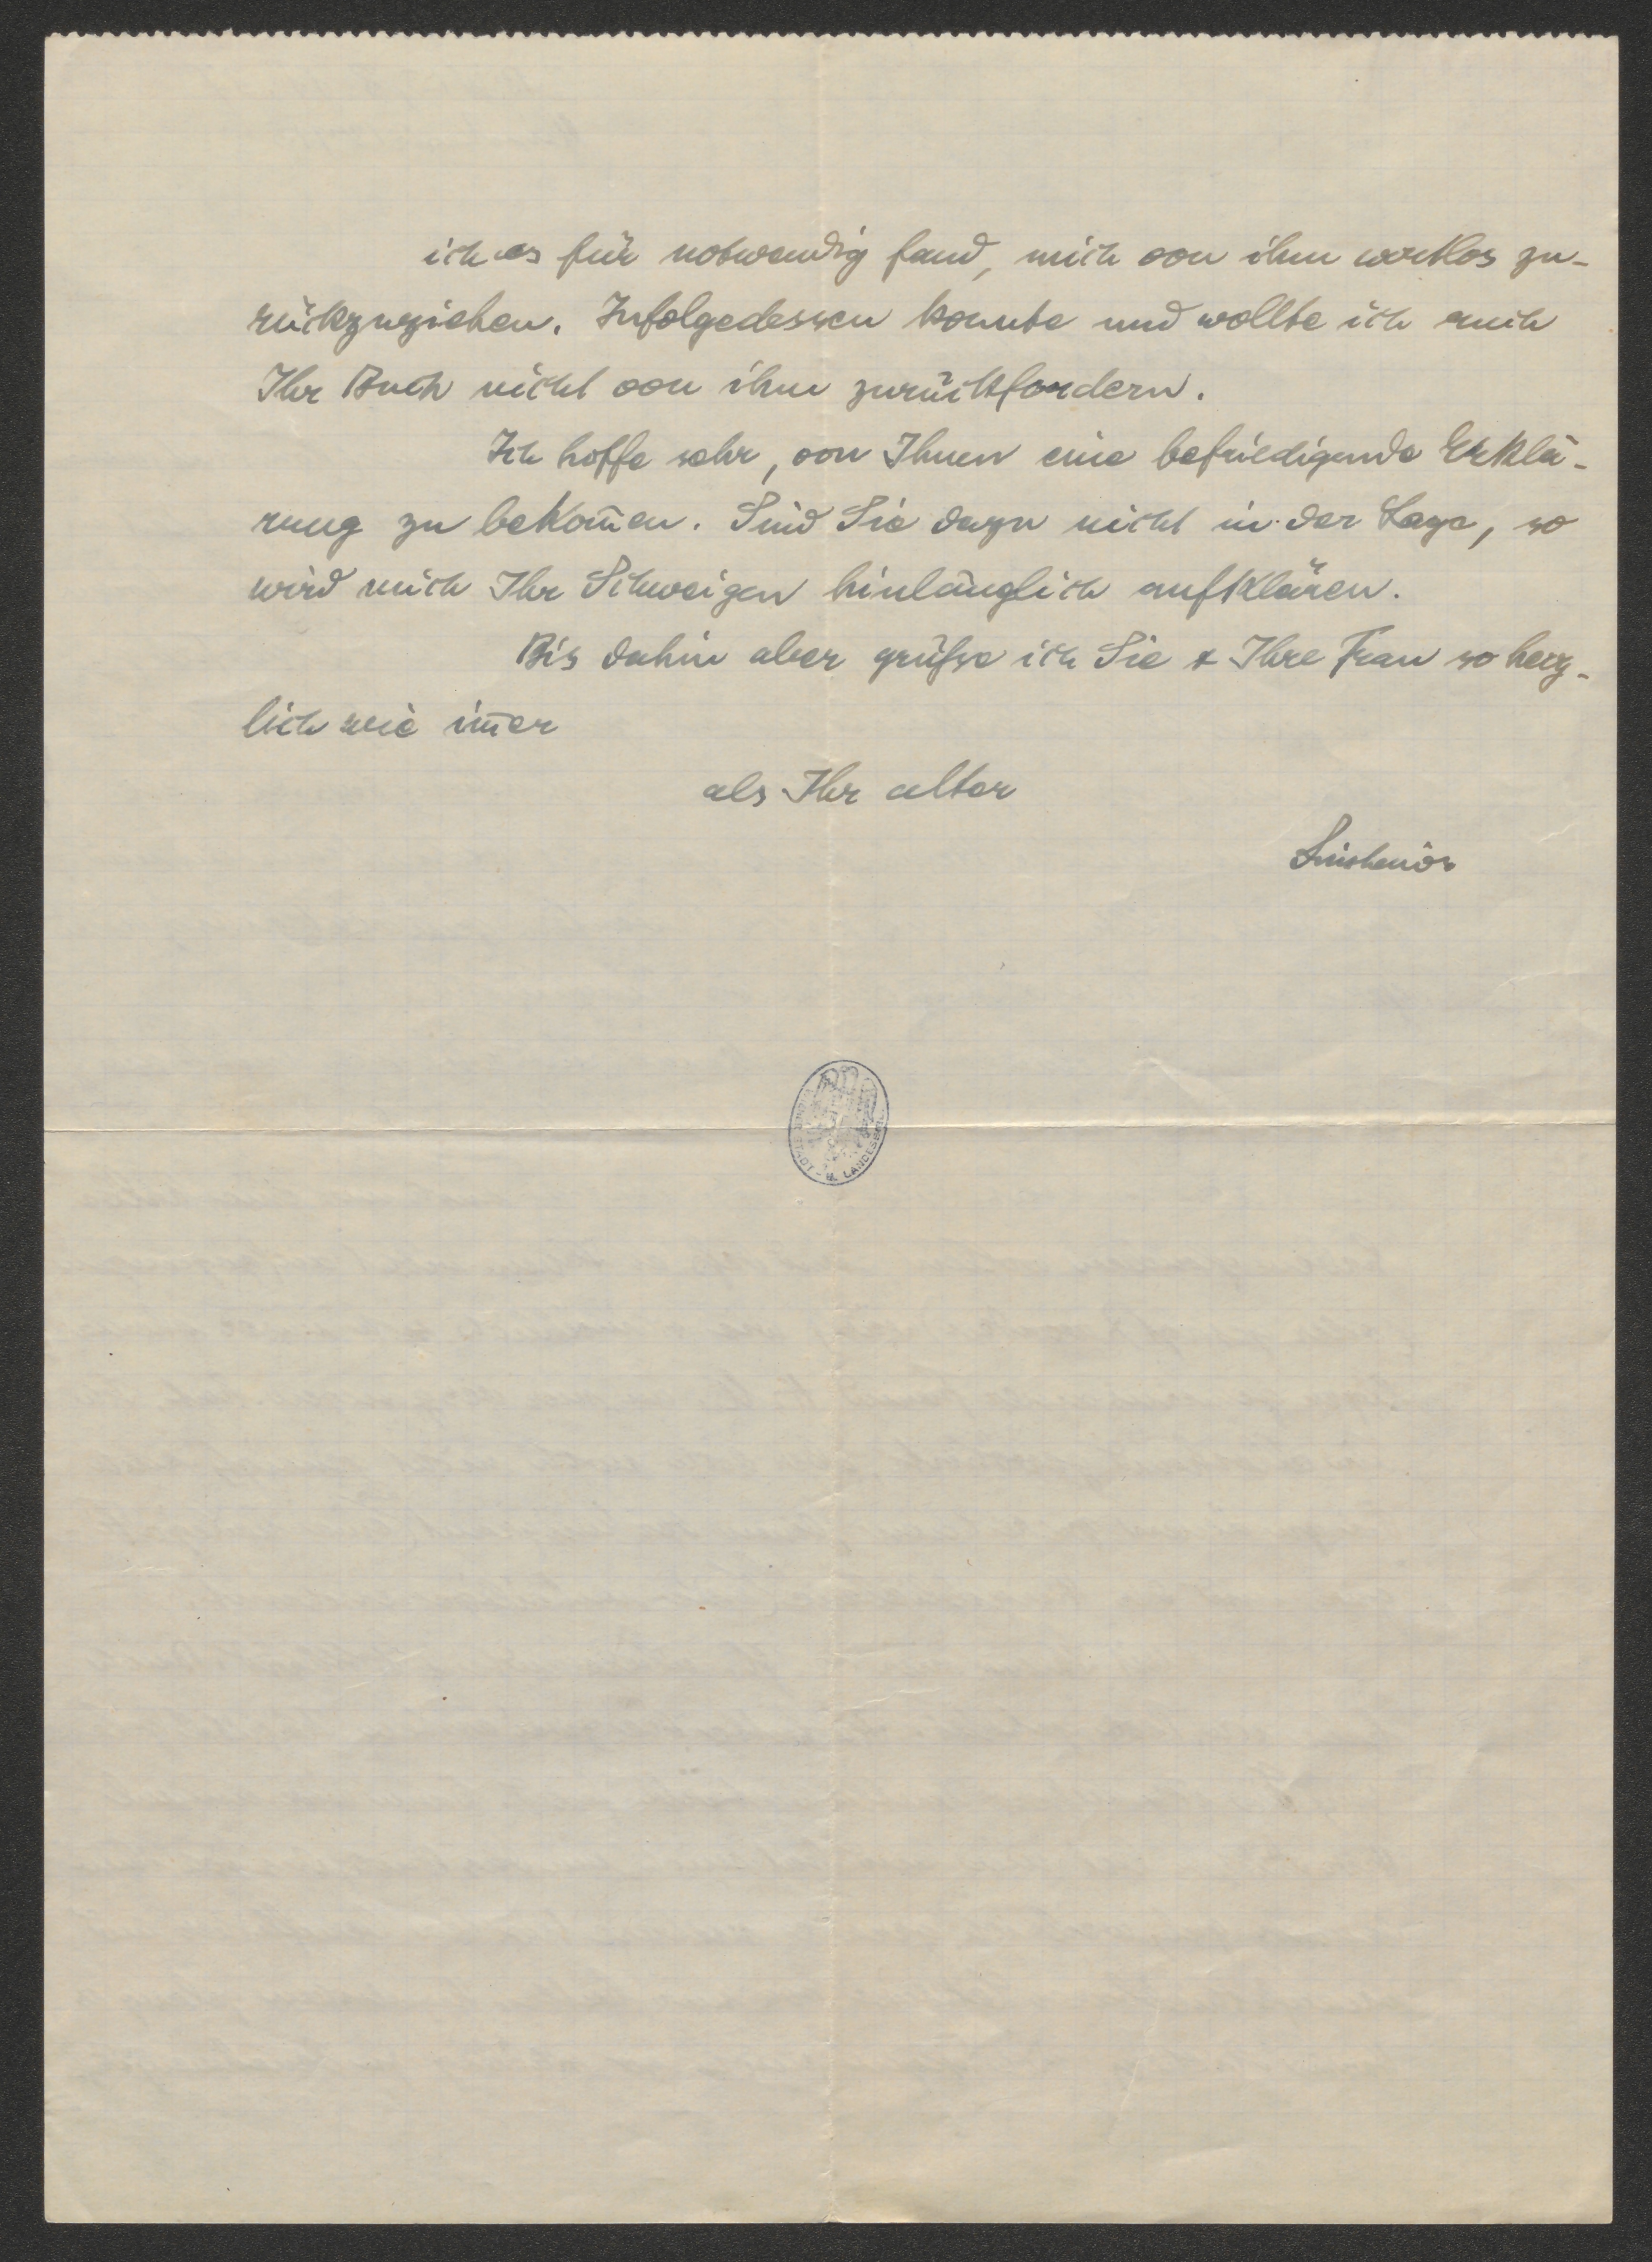 ich es für notwendig fand, mich von ihm wortlos zu-
rückzuziehen. Infolgedessen konnte und wollte ich auch
Ihr Buch nicht von ihm zurückfordern.
Ich hoffe sehr, von Ihnen eine befriedigende Erklä-
rung zu bekom̅en. Sind Sie dazu nicht in der Lage, so
wird mich Ihr Schweigen hinlänglich aufklären.
Bis dahin aber grüsse ich Sie & Ihre Frau so herz-
lich wie im̅er
als Ihr alter
STADT- U. LANDESBIBL.